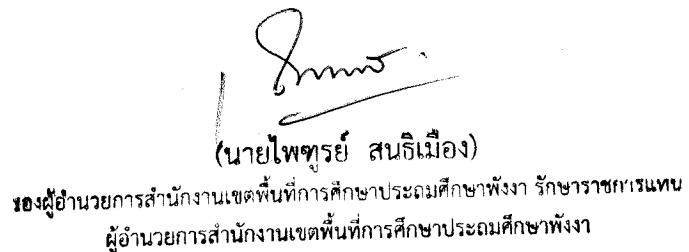 (นายไพฑูรย์ สนธิเมือง)
รองผู้อำนวยการสำนักงานเขตพื้นที่การศึกษาประถมศึกษาพังงา รักษาราชการแทน
ผู้อำนวยการสำนักงานเขตพื้นที่การศึกษาประถมศึกษาพังงา